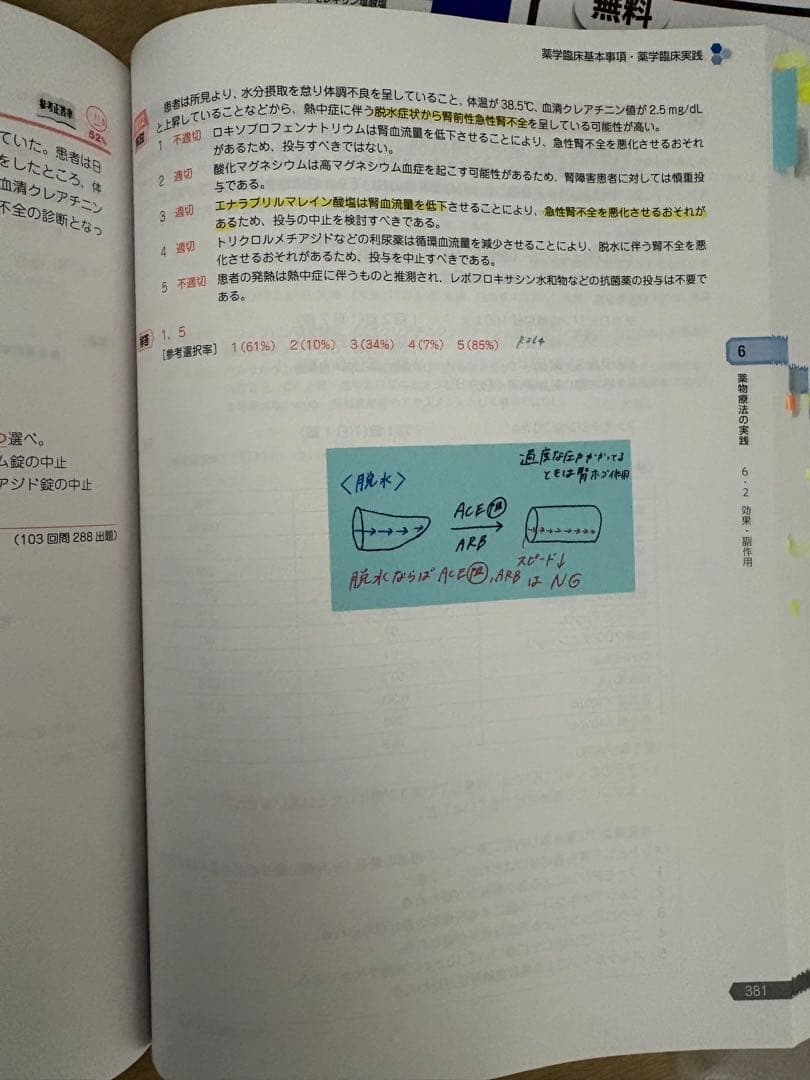 無料
薬学臨床基本事項・薬学臨床実践
52%
ていた。患者は日
をしたところ、体
血清クレアチニン
不全の診断となっ
選べ。
ム錠の中止
アジド錠の中止
(103回問288出題)
患者は所見より、水分摂取を怠り体調不良を呈していること、体温が38.5℃、血清クレアチニン値が2.5mg/dL
と上昇していることなどから、熱中症に伴う脱水症状から腎前性急性腎不全を呈している可能性が高い。
1 不適切 ロキソプロフェンナトリウムは腎血流量を低下させることにより、急性腎不全を悪化させるおそれ
があるため、投与すべきではない。
2 適切 酸化マグネシウムは高マグネシウム血症を起こす可能性があるため、腎障害患者に対しては慎重投
与である。
3 適切 エナラプリルマレイン酸塩は腎血流量を低下させることにより、急性腎不全を悪化させるおそれが
あるため、投与の中止を検討すべきである。
4 適切 トリクロルメチアジドなどの利尿薬は循環血流量を減少させることにより、脱水に伴う腎不全を悪
化させるおそれがあるため、投与を中止すべきである。
5 不適切 患者の発熱は熱中症に伴うものと推測され、レボフロキサシン水和物などの抗菌薬の投与は不要で
ある。
解答 1、5
[参考選択率] 1(61%) 2(10%) 3(34%) 4(7%) 5(85%)
6
薬物療法の実践
6・2 効果・副作用
過度な圧がかかってる
ともは腎ホゴ作用
〈脱水〉
ACE阻
ARB
スピード↓
脱水ならば ACE阻, ARB は NG
381